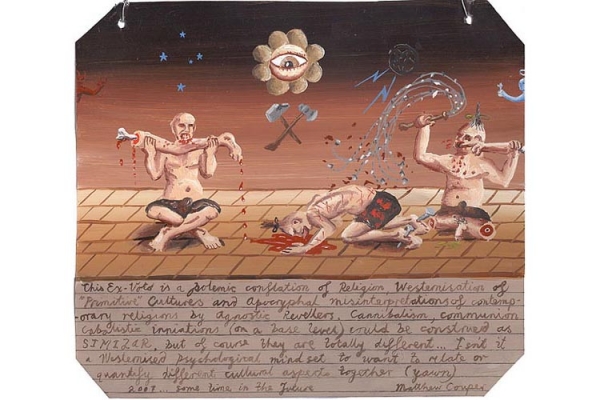 This Ex-Voto is a polemic conflation of Religion, Westernisation of
"Primitive" Cultures and Apocryphal misinterpretations of contemp-
-orary religions by Agnostic Revellers. Cannibalism, communion
Cabalistic inniations (on a base level) could be construed as
SIMILAR, but of course they are totally different... Isn't it
a Westernised Psychological mind set to want to relate or
quantify different cultural aspects together (yawn)
2007... some time in the Future Matthew Couper